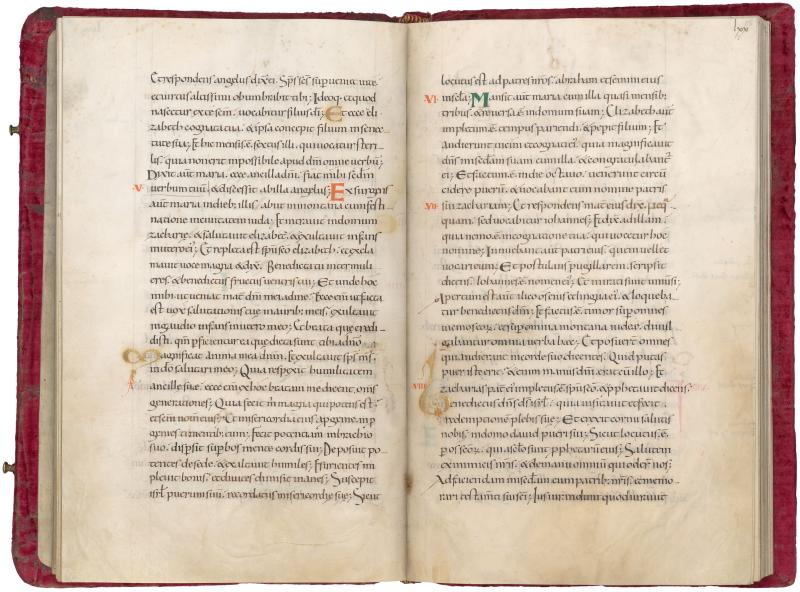 Et respondens angelus dixit ei. Sp̄s sc̄s supueniet inte
et uirtus altissimi obumbrabit tibi; Ideoq; et quod
nascetur exte sc̄m. uocabitur filius dī; Et ecce eli
zabeth cognata tua. & ipsa concepit filium insenec
tute sua; Et hic mensis. ē. sextus illi. qui uocatur steri
lis. quia non erit impossibile apud dm̄ omne uerbū;
Dixit aut̄ maria. ecce ancilla dn̄i. fiat mihi sedm̄
V uerbum tuū. & discessit abilla angelus; Exsurgens
aut̄ maria indieb; illis. abiit inmontana cum festi
natione inciuitatem iuda; Et intrauit indomum
zacharie. & salutauit elizabeth. & exultauit infans
inutero ei'; Et repleta est spū sc̄o elizabeth. et excla
mauit uoce magna & dix̄. Benedicta tu inter muli
eres. & benedictus fructus uentris tui; Et unde hoc
mihi. ut ueniat mat̄ dn̄i mei adme. Ecce eni ut facta
est uox salutationis tue inaurib; meis. exultauit
ingaudio infans inutero meo; Et beata que credi
disti. qm̄ pficientur ea que dicta sunt tibi adn̄o
Magnificat anima mea dn̄m. Et exultauit sp̄s m̄s.
indō salutari meo; Quia respexit humilitatem
ancille sue. ecce eni exhoc beatam me dicent. om̄s
generationes; Quia fecit m̄ magna qui potens est.
et sc̄m nom̄ eius; Et misericordia eius ap̄genie inp̄
genies timentib; eum; Fecit potentiam inbrachio
suo. dispsit supbos mente cordis sui; Deposuit po
tentes desede. & exaltauit humiles; Esurientes im
pleuit bonis. et diuites dimisit inanes; Suscepit
isrl̄ puerum suū. recordatus misericordie sue; Sicut
lxxx
locutus est adpatres nr̄os. abraham et semini eius
VI insecla; Mansit aut̄ maria cum illa quasi mensib;
tribus. & reuersa ē indomum suam; Elizabeth aut̄
impletum ē. tempus pariendi. & pep̄it filium; Et
audierunt uicini et cognati ei'. quia magnificauit
dn̄s mis̄dam suam cum illa. & congratulabant̄
ei; Et factum ē. indie octauo. uenerunt circū
cidere puerū. & uocabant eum nomine patris
VII sui zachariam; Et respondens mat̄ eius dix̄. neq̄
quam. sed uocabitur iohannes; Et dix̄ adillam.
quia nemo ē. incognatione tua. qui uocetur hoc
nomine; Innuebant aut̄ patri eius. quem uellet
uocari eum; Et postulans pugillarem. scripsit
dicens. Iohannes ē nomen ei'; Et mirati sunt uniūsi;
Apertum est aut̄ ilico os eius et lingua ei'. & loqueba
tur benedicens dm̄; Et factus ē. timor sup omnes
uicinos eor̄. et sup omnia montana iudee. diuul
gabantur omnia uerba hec; Et posuer̄ omnes
qui audierunt incorde suo dicentes. Quid putas
puer iste erit; & etenim manus dn̄i. erat cū illo; Et
VIII zacharias pat̄ ei' impletus ē spū sc̄o. & pphetauit dicens.
Benedictus dn̄s dſ isrl̄. quia uisitauit et fecit
redemptionē plebis sue; Et erexit cornu salutis
nobis. indomo dauid pueri sui; Sicut locutus. ē.
p os sc̄or̄. qui asc̄lo sunt pphetar̄ ei'; Salutem
ex inimicis nr̄is. & demanu omniū qui oder̄ nos;
Ad faciendam mis̄dam cum patrib; nr̄is. et memo
rari testam̄ti sui sc̄i; Iusiurandum quod iurauit